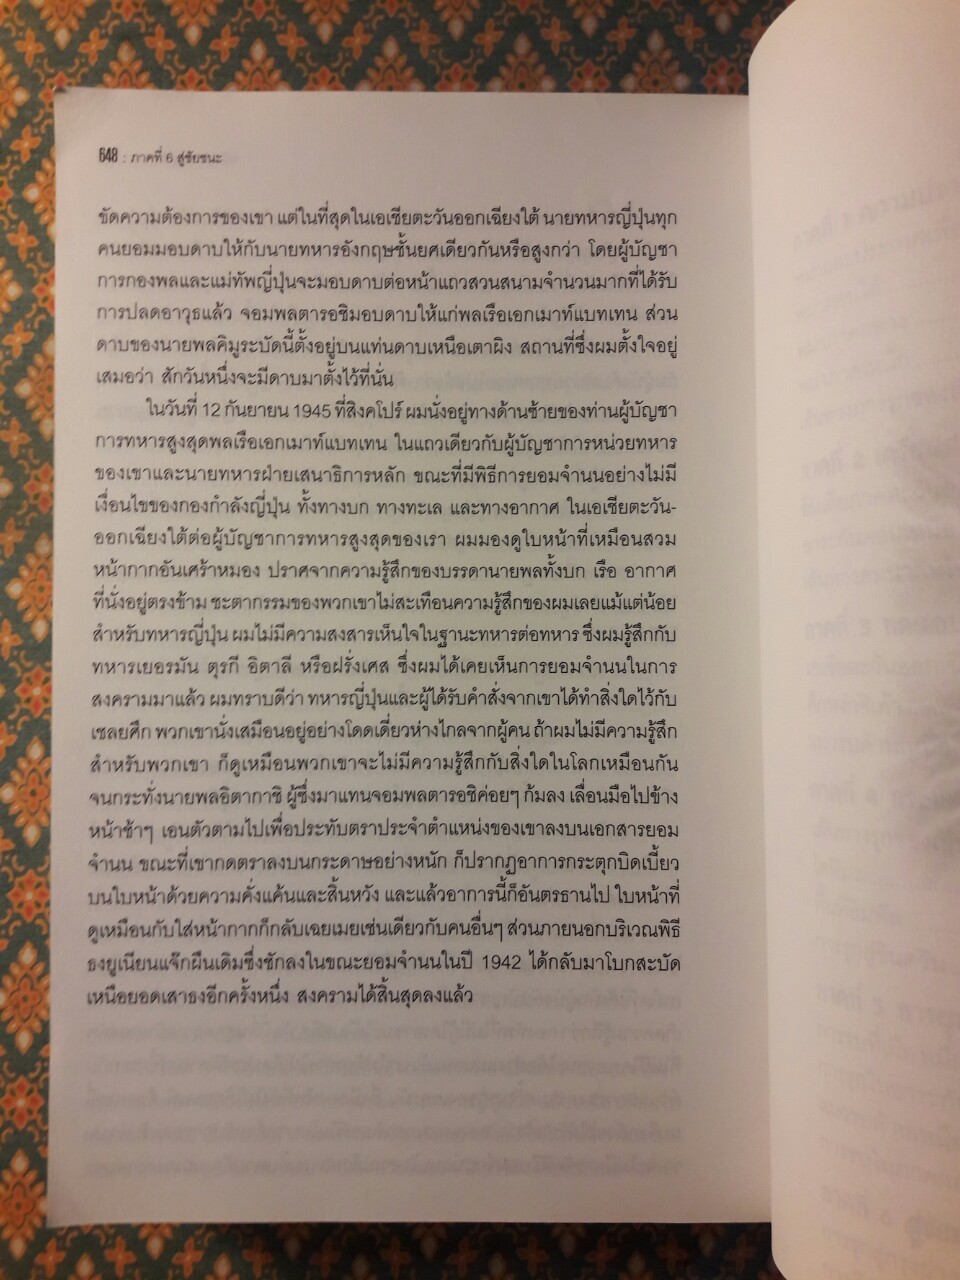 648 : ภาคที่ 6 สู่ชัยชนะ
ขัดความต้องการของเขา แต่ในที่สุดในเอเชียตะวันออกเฉียงใต้ นายทหารญี่ปุ่นทุก
คนยอมมอบดาบให้กับนายทหารอังกฤษชั้นยศเดียวกันหรือสูงกว่า โดยผู้บัญชา
การกองพลและแม่ทัพญี่ปุ่นจะมอบดาบต่อหน้าแถวสวนสนามจำนวนมากที่ได้รับ
การปลดอาวุธแล้ว จอมพลตารอชิมอบดาบให้แก่พลเรือเอกเมาท์แบทเทน ส่วน
ดาบของนายพลคิมูระบัดนี้ตั้งอยู่บนแท่นดาบเหนือเตาผิง สถานที่ซึ่งผมตั้งใจอยู่
เสมอว่า สักวันหนึ่งจะมีดาบมาตั้งไว้ที่นั่น
ในวันที่ 12 กันยายน 1945 ที่สิงคโปร์ ผมนั่งอยู่ทางด้านซ้ายของท่านผู้บัญชา
การทหารสูงสุดพลเรือเอกเมาท์แบทเทน ในแถวเดียวกับผู้บัญชาการหน่วยทหาร
ของเขาและนายทหารฝ่ายเสนาธิการหลัก ขณะที่มีพิธีการยอมจำนนอย่างไม่มี
เงื่อนไขของกองกำลังญี่ปุ่น ทั้งทางบก ทางทะเล และทางอากาศ ในเอเชียตะวัน-
ออกเฉียงใต้ต่อผู้บัญชาการทหารสูงสุดของเรา ผมมองดูใบหน้าที่เหมือนสวม
หน้ากากอันเศร้าหมอง ปราศจากความรู้สึกของบรรดานายพลทั้งบก เรือ อากาศ
ที่นั่งอยู่ตรงข้าม ชะตากรรมของพวกเขาไม่สะเทือนความรู้สึกของผมเลยแม้แต่น้อย
สำหรับทหารญี่ปุ่น ผมไม่มีความสงสารเห็นใจในฐานะทหารต่อทหาร ซึ่งผมรู้สึกกับ
ทหารเยอรมัน ตุรกี อิตาลี หรือฝรั่งเศส ซึ่งผมได้เคยเห็นการยอมจำนนในการ
สงครามมาแล้ว ผมทราบดีว่า ทหารญี่ปุ่นและผู้ได้รับคำสั่งจากเขาได้ทำสิ่งใดไว้กับ
เชลยศึก พวกเขานั่งเสมือนอยู่อย่างโดดเดี่ยวห่างไกลจากผู้คน ถ้าผมไม่มีความรู้สึก
สำหรับพวกเขา ก็ดูเหมือนพวกเขาจะไม่มีความรู้สึกกับสิ่งใดในโลกเหมือนกัน
จนกระทั่งนายพลอิตากาชิ ผู้ซึ่งมาแทนจอมพลตารอชิค่อยๆ ก้มลง เลื่อนมือไปข้าง
หน้าช้าๆ เอนตัวตามไปเพื่อประทับตราประจำตำแหน่งของเขาลงบนเอกสารยอม
จำนน ขณะที่เขากดตราลงบนกระดาษอย่างหนัก ก็ปรากฏอาการกระตุกบิดเบี้ยว
บนใบหน้าด้วยความคั่งแค้นและสิ้นหวัง และแล้วอาการนี้ก็อันตรธานไป ใบหน้าที่
ดูเหมือนกับใส่หน้ากากก็กลับเฉยเมยเช่นเดียวกับคนอื่นๆ ส่วนภายนอกบริเวณพิธี
ธงยูเนียนแจ๊กผืนเดิมซึ่งชักลงในขณะยอมจำนนในปี 1942 ได้กลับมาโบกสะบัด
เหนือยอดเสาธงอีกครั้งหนึ่ง สงครามได้สิ้นสุดลงแล้ว